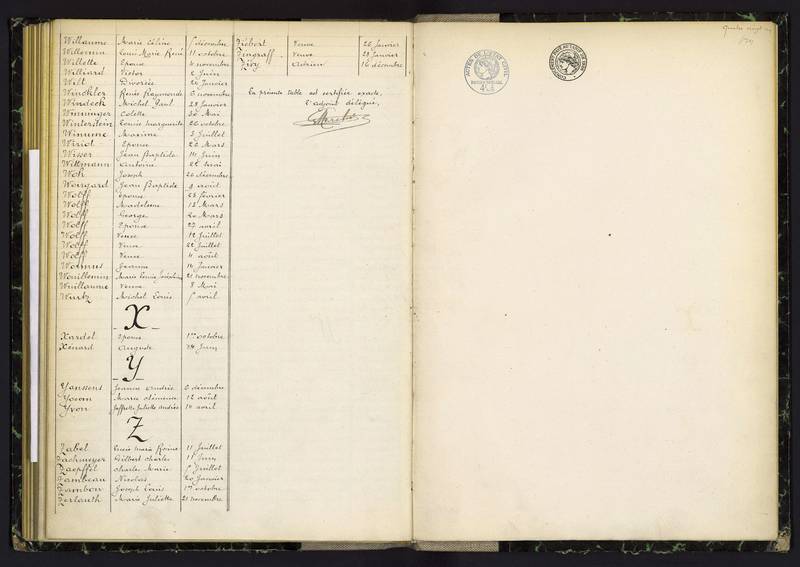 Willaume Marie Céline 5 décembre
Willemin Louis Marie René 11 octobre
Willette Epouse 4 novembre
Willeard Victor 2 Juin
Wilt Divorcée 24 Janvier
Winckler Renée Raymonde 6 novembre
Windeck Michel Paul 28 Janvier
Colette 30 Mai
Winterstein Louise Marguerite 26 octobre
Winume Maxime 3 Juillet
Wirid Epouse 22 Mars
Wisser Jean Baptiste Juin
Wittmann Antoine 22 Mai
Woh Joseph 26 décembre
Woirgard Jean Baptiste 9 août
Wolff Epouse 28 février
Wolff Madeleine 13 Mars
Wolff George 20 Mars
Wolff Epouse 27 avril
Wolff Veuve 12 Juillet
Wolff Veuve 22 Juillet
Wolff Veuve 4 août
Wormus Jeanne 14 Janvier
Wouillemin Marie Louise Joséphine 21 novembre
Wuillaume Veuve 8 Mai
Wurtz Michel Louis 5 avril
X
Xardel Epouse 1er octobre
Xénard Auguste 24 Juin
Y
Yanssens Jeanne Andrée 6 décembre
Marie Clémence 12 août
Yvon Juliette Andrée 14 avril
Z
Zabel Lucie Marie Reine 11 Juillet
Zachmeyer Gilbert Charles 11 Juin
Zaepffel Charles Marie 5 Juillet
Zambeau Nicolas 20 Janvier
Zambon Joseph Louis 1er octobre
Zerlauth Marie Juliette 21 novembre
Ziebert Veuve 26 Janvier
Zingraff Veuve 29 Janvier
Zivy Adrien 16 décembre
La présente table est certifiée exacte,
L'adjoint délégué,
ACTES DE L'ETAT CIVIL